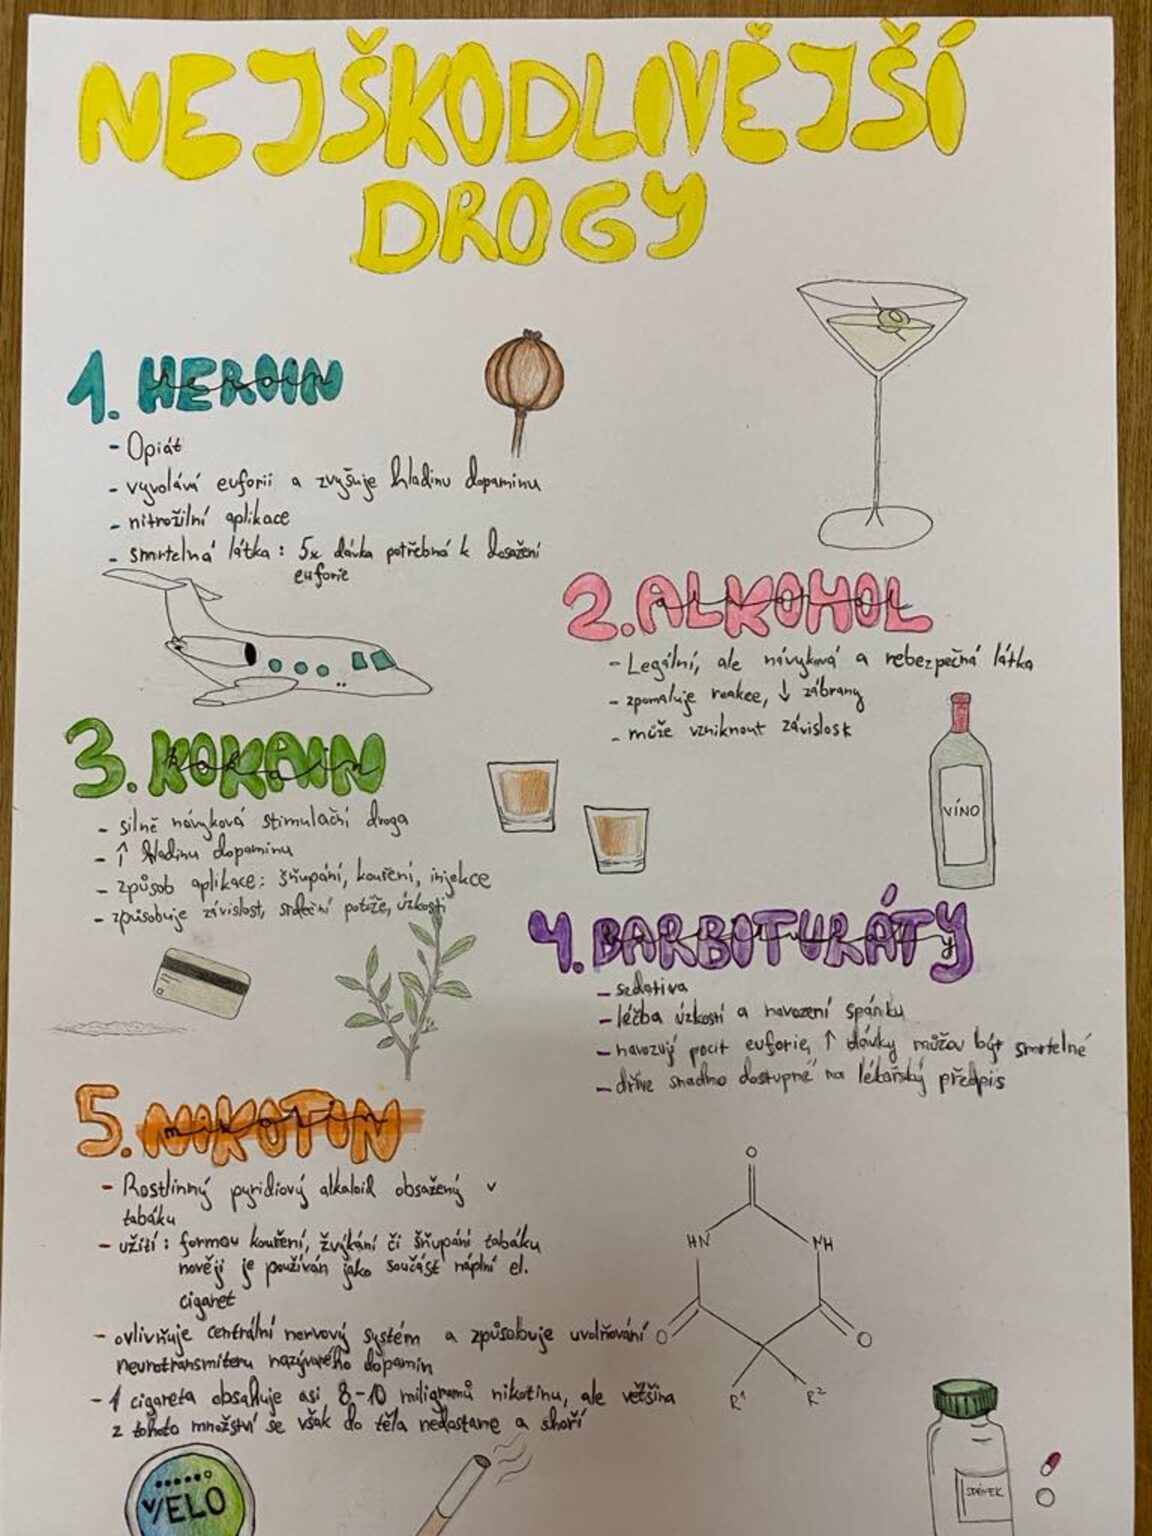 NEJŠKODLIVĚJŠÍ
DROGY
1. HEROIN
heroin
- Opiát
- vyvolává euforii a zvyšuje hladinu dopaminu
- nitrožilní aplikace
- smrtelná látka: 5x dávka potřebná k dosažení
euforie
2. ALKOHOL
alkohol
- Legální, ale návyková a nebezpečná látka
- zpomaluje reakce, ↓ zábrany
- může vzniknout závislost
VÍNO
3. KOKAIN
kokain
- silně návyková stimulační droga
- ↑ hladinu dopaminu
- způsob aplikace: šňupání, kouření, injekce
- způsobuje závislost, srdeční potíže, úzkosti
4. BARBITURÁTY
barbituráty
- sedativa
- léčba úzkostí a navození spánku
- navozují pocit euforie, ↑ dávky můžou být smrtelné
- dříve snadno dostupné na lékařský předpis
5. NIKOTIN
nikotin
- Rostlinný pyridiový alkaloid obsažený v
tabáku
- užití: formou kouření, žvýkání či šňupání tabáku
nověji je používán jako součást náplní el.
cigaret
- ovlivňuje centrální nervový systém a způsobuje uvolňování
neurotransmiteru nazývaného dopamin
- 1 cigareta obsahuje asi 8-10 miligramů nikotinu, ale většina
z tohoto množství se však do těla nedostane a shoří
O
HN NH
O O
R¹ R²
VELO